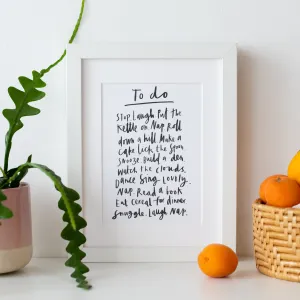 To do
Stop Laugh Put the
Kettle on Nap Roll
down a hill Make a
cake Lick the Spoon
Snooze Build a den
Watch the clouds.
Dance Sing Lovely.
Nap Read a book
Eat Cereal for dinner
Snuggle. Laugh Nap.